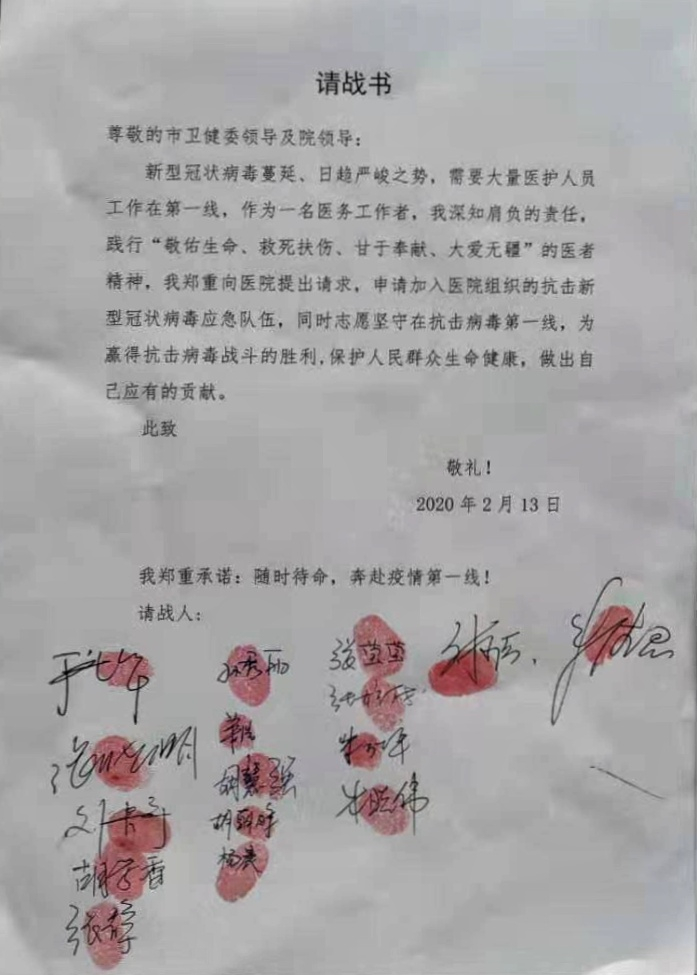 请战书
尊敬的市卫健委领导及院领导：
新型冠状病毒蔓延、日趋严峻之势，需要大量医护人员
工作在第一线，作为一名医务工作者，我深知肩负的责任，
践行“敬佑生命、救死扶伤、甘于奉献、大爱无疆”的医者
精神，我郑重向医院提出请求，申请加入医院组织的抗击新
型冠状病毒应急队伍，同时志愿坚守在抗击病毒第一线，为
赢得抗击病毒战斗的胜利,保护人民群众生命健康，做出自
己应有的贡献。
此致
敬礼！
2020 年 2 月 13 日
我郑重承诺：随时待命，奔赴疫情第一线！
请战人：
胡学香
张静